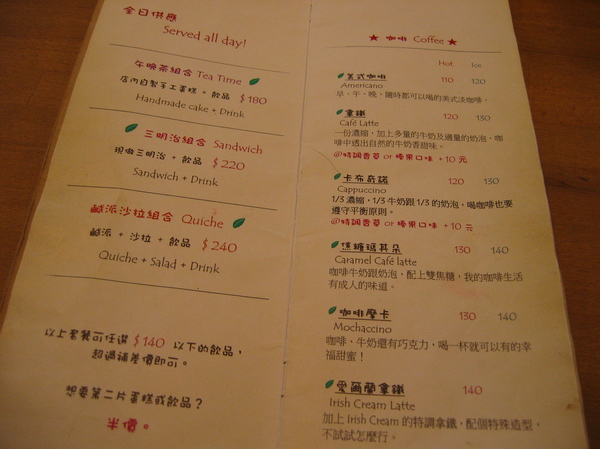 全日供應
Served all day!
午晚茶組合 Tea Time
店內自製手工蛋糕 + 飲品 $180
Handmade cake + Drink
三明治組合 Sandwich
現做三明治 + 飲品 $220
Sandwich + Drink
鹹派沙拉組合 Quiche
鹹派 + 沙拉 + 飲品 $240
Quiche + Salad + Drink
以上套餐可任選 $140 以下的飲品,
超過補差價即可。
想要第二片蛋糕或飲品?
半價。
★ 咖啡 Coffee ★
Hot Ice
美式咖啡 110 120
Americano
早、午、晚、隨時都可以喝的美式淡咖啡。
拿鐵 120 130
Café Latte
一份濃縮,加上多量的牛奶及適量的奶泡,咖
啡中透出自然的牛奶香甜味。
@特調香草 or 榛果口味 + 10 元
卡布奇諾 120 130
Cappuccino
1/3 濃縮,1/3 牛奶跟 1/3 的奶泡,喝咖啡也要
遵守平衡原則。
@特調香草 or 榛果口味 + 10 元
焦糖瑪其朵 130 140
Caramel Café latte
咖啡牛奶跟奶泡,配上雙焦糖,我的咖啡生活
有成人的味道。
咖啡摩卡 130 140
Mochaccino
咖啡、牛奶還有巧克力,喝一杯就可以有的幸
福甜蜜!
愛爾蘭拿鐵 140
Irish Cream Latte
加上 Irish Cream 的特調拿鐵,配個特殊造型,
不試試怎麼行。